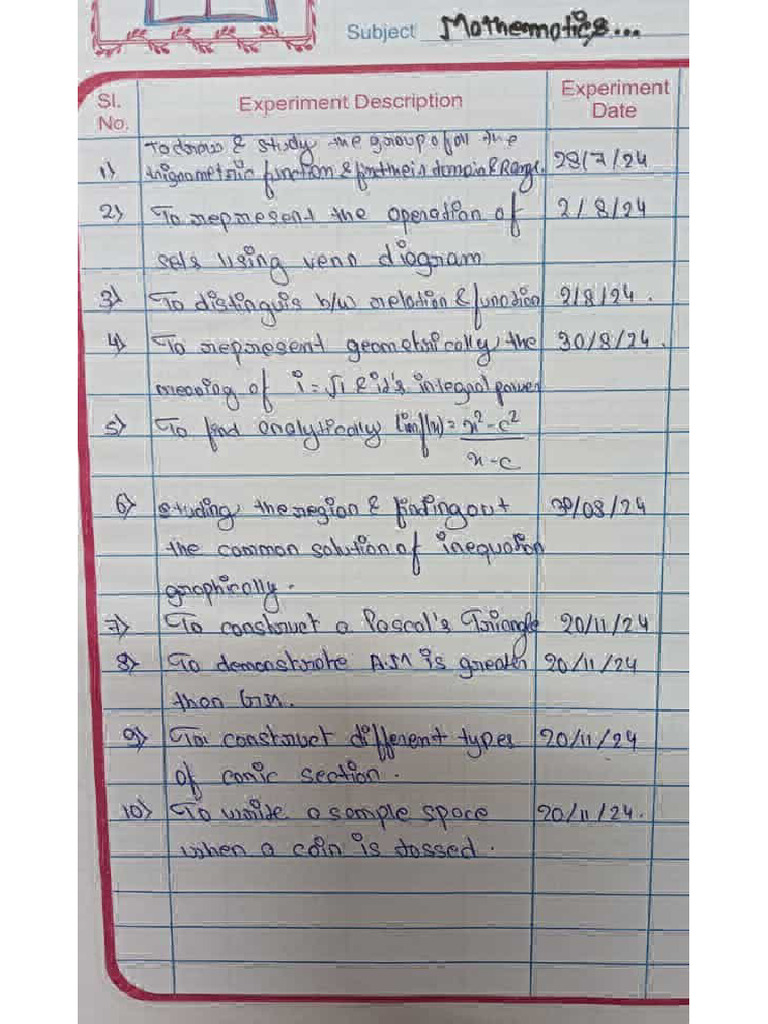 Subject Mathematics...
Sl. No. Experiment Description Experiment Date
To draw & study the group of all the
1) trignometric function & find their domain & Range. 28/7/24
2) To represent the operation of 2/8/24
sets using venn diagram
3) To distinguis b/w relation & function 2/8/24.
4) To represent geometrically, the 30/8/24.
meaning of i = √1 & it's integral power
5) To find analytically lim f(x) = x²-c² / x-c
6) studing the region & finding out 30/08/24
the common solution of inequation
graphically.
7) To construct a Pascal's Triangle 20/11/24
8) To demonstrate A.M is greater 20/11/24
than G.M.
9) To construct different types 20/11/24
of conic section.
10) To write a sample space 20/11/24.
when a coin is tossed.